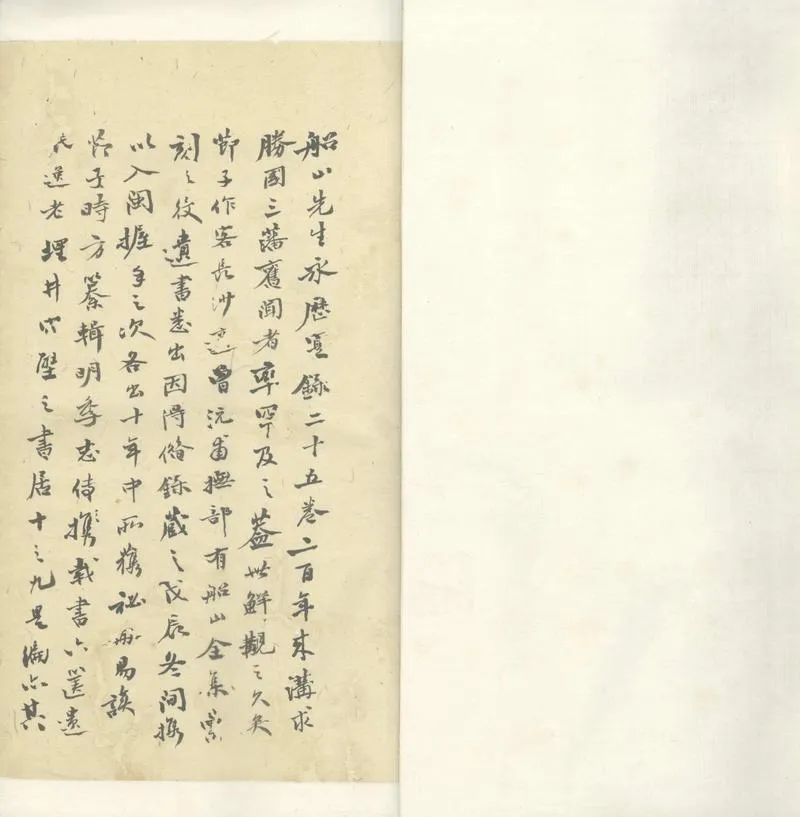 船山先生永歷實錄二十五卷二百年來講求
勝國三藩舊聞者率罕及之蓋世鮮覯之久矣
節子作客長沙適曾沅甫撫部有船山全集彙
刻之役遺書悉出因得備錄藏之戊辰冬間携
以入閩握手之次各出十年中所獲祕册易讀
節子時方纂輯明季志傳携載書六簏遺
民逸老埋井穴壁之書居十之九是編亦其